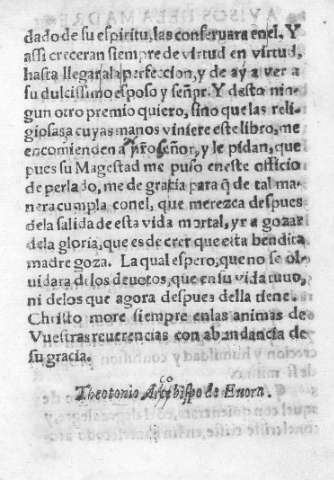 dado de su espiritu, las conseruara enel. Y
assi creceran siempre de virtud en virtud,
hasta llegar ala perfeccion, y de ay a ver a
su dulcissimo esposo y señor. Y desto nin-
gun otro premio quiero, sino que las reli-
giosas a cuyas manos viniere este libro, me
encomienden a nr̃o señor, y le pidan, que
pues su Magestad me puso eneste officio
de perlado, me de gracia para q̃ de tal ma-
nera cumpla conel, que merezca despues
dela salida de esta vida mortal, yr a gozar
dela gloria, que es de creer que esta bendita
madre goza. La qual espero, que no se ol-
uidara delos deuotos, que en su vida tuuo,
ni delos que agora despues della tiene.
Christo more siempre enlas animas de
Vuestras reuerencias con abundancia de
su gracia.
Theotonio Arçobispo de Euora.